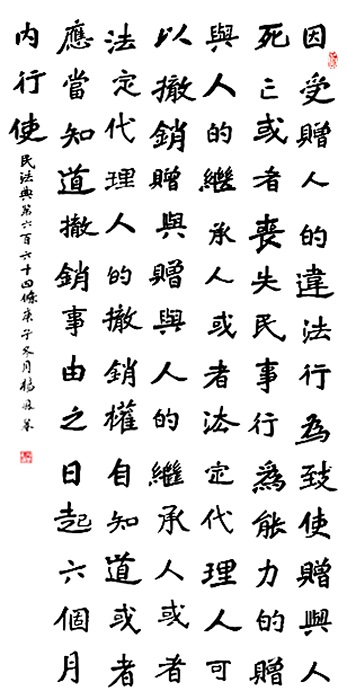 因受贈人的違法行為致使贈與人
死亡或者喪失民事行為能力的贈
與人的繼承人或者法定代理人可
以撤銷贈與贈與人的繼承人或者
法定代理人的撤銷權自知道或者
應當知道撤銷事由之日起六個月
内行使
民法典第六百六十四條庚子冬月楊